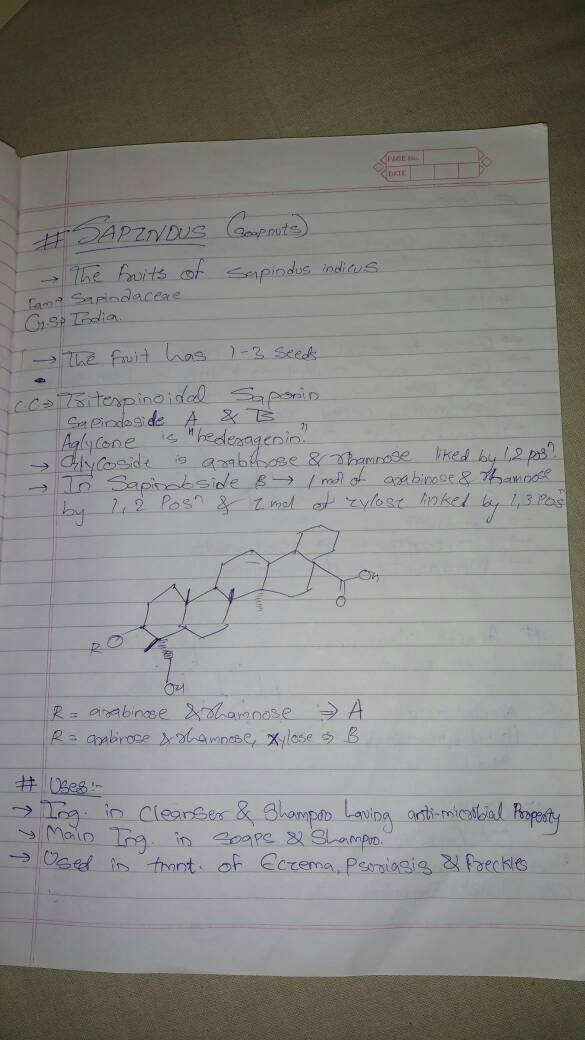 PAGE No.
DATE
# SAPINDUS (Soapnuts)
→ The fruits of Sapindus indicus
Fam⇒ Sapindaceae
G.S⇒ India.
→ The fruit has 1-3 seeds
C.C⇒ Triterpinoidal Saponin
Sapindoside A & B
Aglycone is "hederagenin."
→ Glycoside is arabinose & rhamnose liked by 1,2 posⁿ
→ In Sapinobside B → 1 mol of arabinose & rhamnose
by 1,2 Posⁿ & 1 mol of xylose linked by 1,3 Posⁿ
OH
O
R O
OH
R = arabinose & rhamnose ⇒ A
R = arabinose & rhamnose, xylose ⇒ B
# Uses:-
→ Ing. in cleanser & Shampoo having anti-microbial Property
→ Main Ing. in soaps & Shampoo.
→ Used in tmnt. of Eczema, Psoriasis & freckles